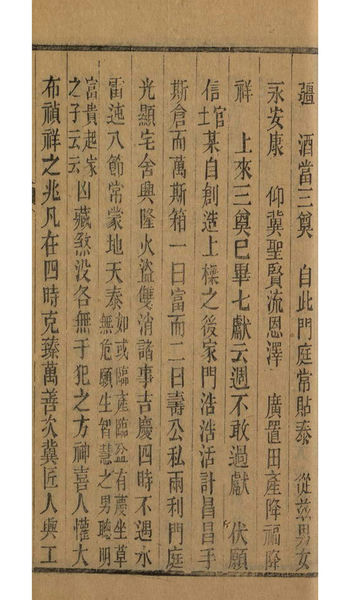 疆　酒當三奠　自此門庭常貼泰　從茲男女
永安康　仰冀聖賢流恩澤　廣置田產降福降
祥　上來三奠已畢七獻云週不敢過獻　伏願
信士官某自創造上樑之後家門浩浩活計昌昌千
斯倉而萬斯箱一曰富而二曰壽公私兩利門庭
光顯宅舍興隆火盜雙消諸事吉慶四時不遇水
雷迍八節常蒙地天泰如或臨產臨盆有慶坐草無危願生智慧之男聰明
富貴起家之子云云凶藏煞沒各無干犯之方神喜人懽大
布禎祥之兆凡在四時克臻萬善次冀匠人興工